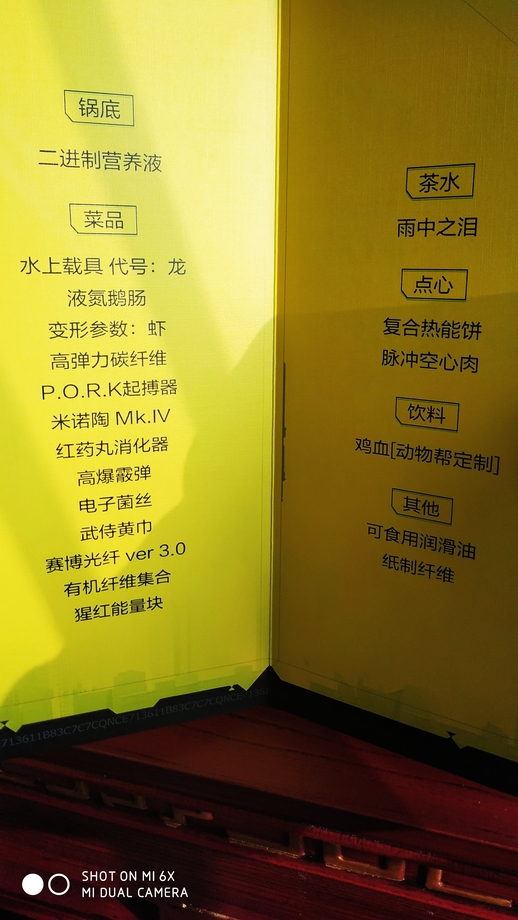 锅底
二进制营养液
菜品
水上载具 代号：龙
液氮鹅肠
变形参数：虾
高弹力碳纤维
P.O.R.K起搏器
米诺陶 Mk.IV
红药丸消化器
高爆霰弹
电子菌丝
武侍黄巾
赛博光纤 ver 3.0
有机纤维集合
猩红能量块
茶水
雨中之泪
点心
复合热能饼
脉冲空心肉
饮料
鸡血[动物帮定制]
其他
可食用润滑油
纸制纤维
SHOT ON MI 6X
MI DUAL CAMERA